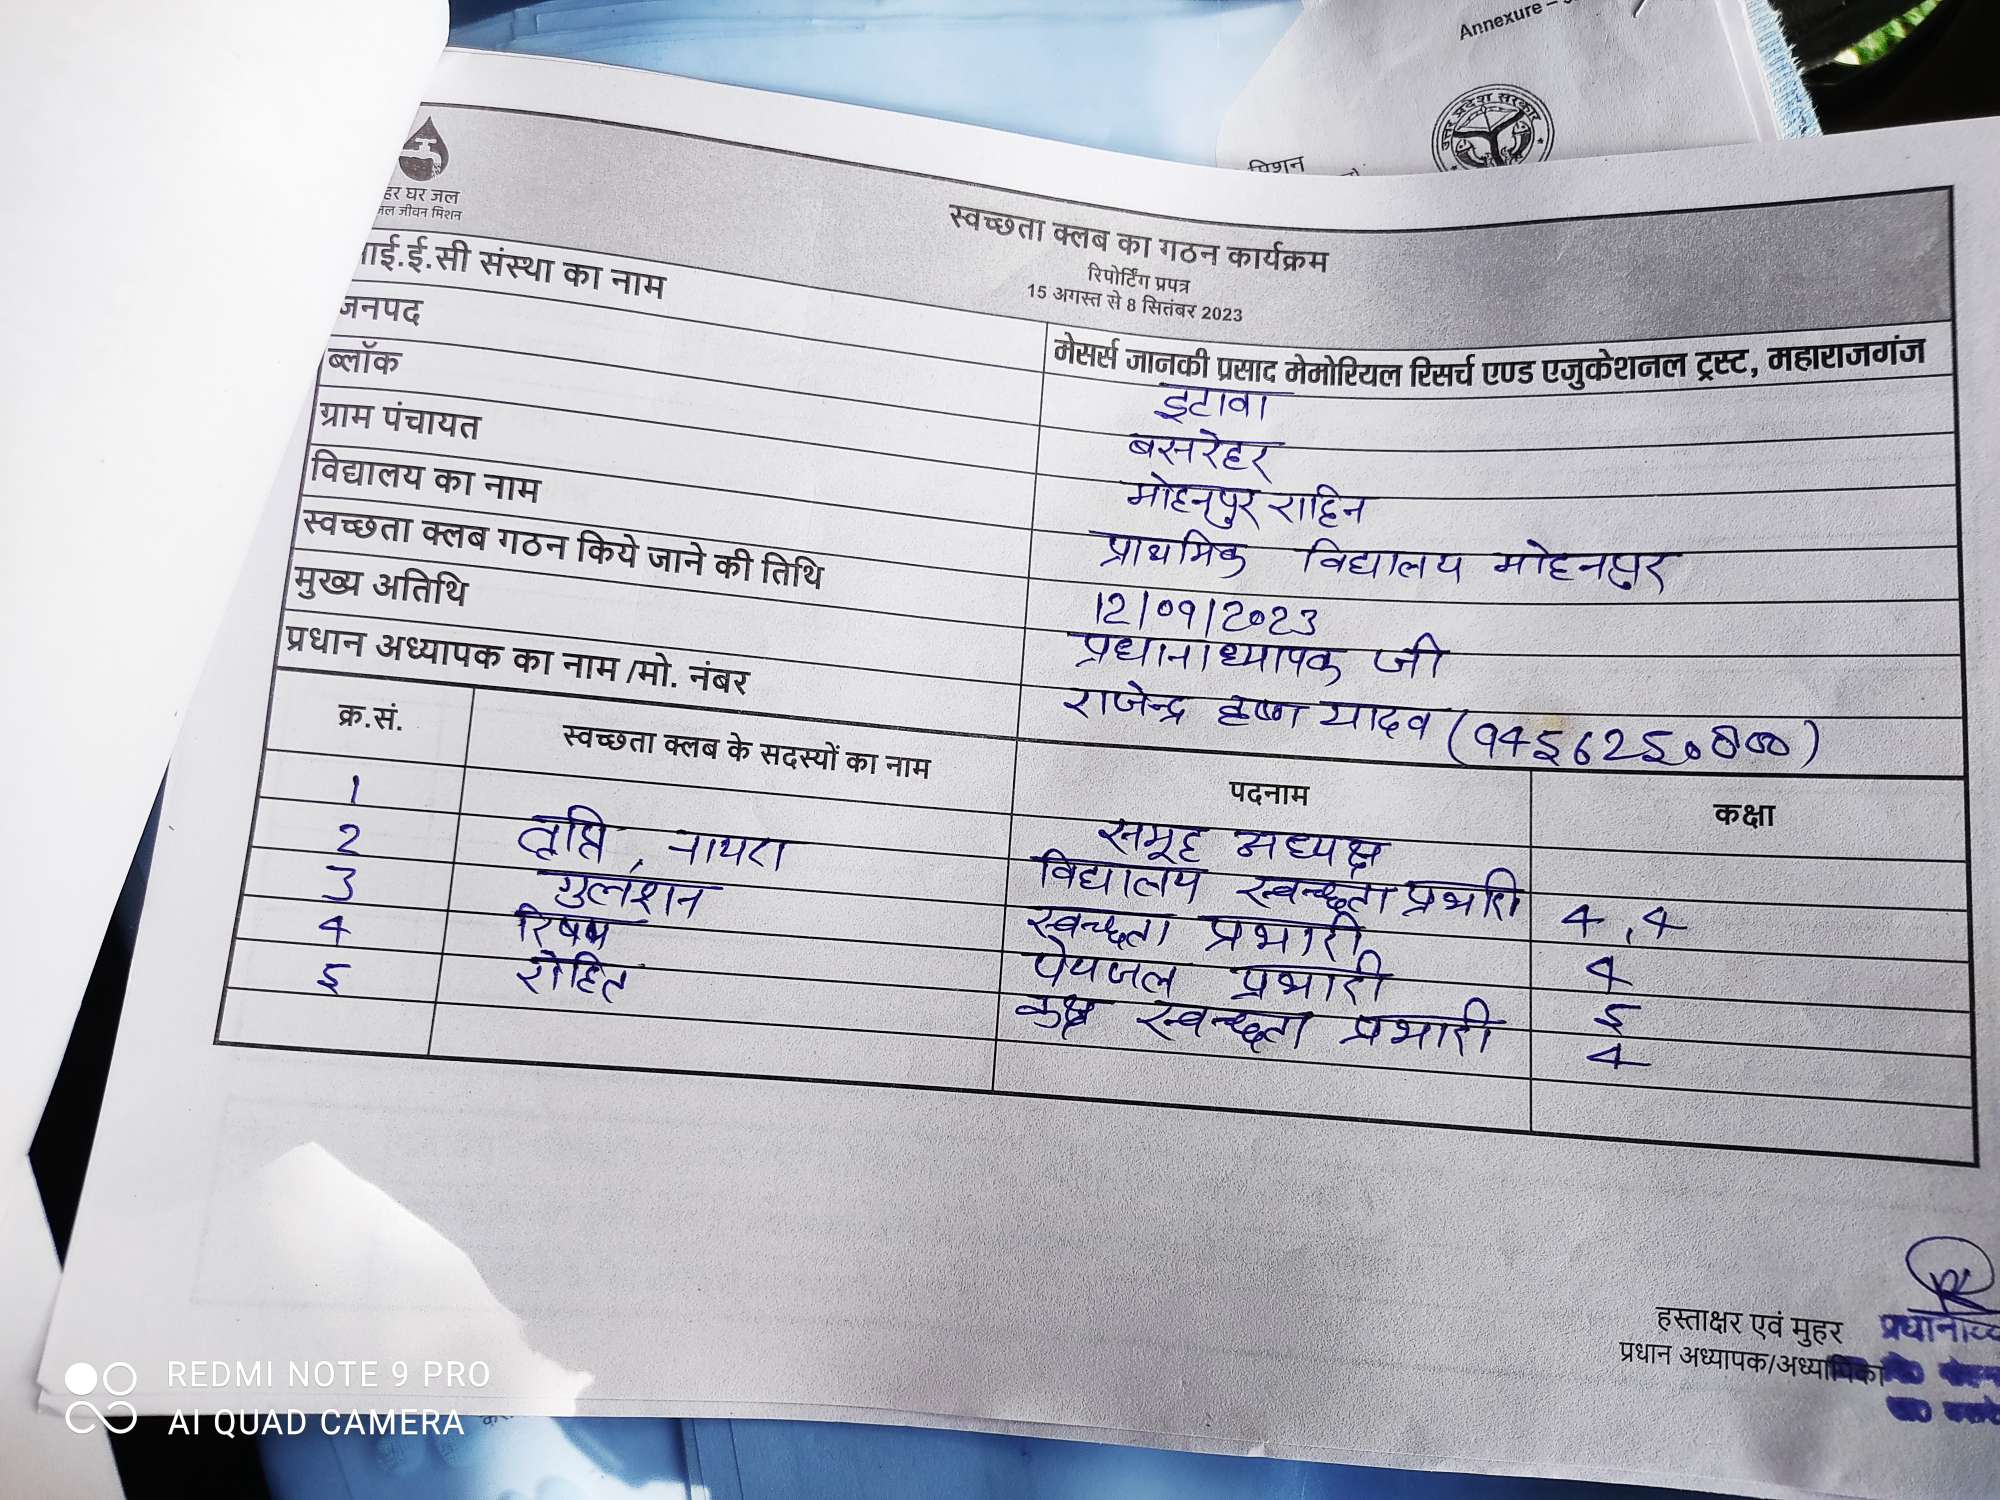 Annexure –
उत्तर प्रदेश सरकार
मिशन
हर घर जल
जल जीवन मिशन
स्वच्छता क्लब का गठन कार्यक्रम
रिपोर्टिंग प्रपत्र
15 अगस्त से 8 सितंबर 2023
आई.ई.सी संस्था का नाम मेसर्स जानकी प्रसाद मेमोरियल रिसर्च एण्ड एजुकेशनल ट्रस्ट, महाराजगंज
जनपद इटावा
ब्लॉक बसरेहर
ग्राम पंचायत मोहनपुर राहिन
विद्यालय का नाम प्राथमिक विद्यालय मोहनपुर
स्वच्छता क्लब गठन किये जाने की तिथि 12/09/2023
मुख्य अतिथि प्रधानाध्यापक जी
प्रधान अध्यापक का नाम /मो. नंबर राजेन्द्र कृष्ण यादव
क्र.सं. स्वच्छता क्लब के सदस्यों का नाम पदनाम कक्षा
1 तृप्ति, नायरा समूह अध्यक्ष 4, 4
2 गुलशन विद्यालय स्वच्छता प्रभारी 4
3 रिषभ स्वच्छता प्रभारी 5
4 रोहित पेयजल प्रभारी 4
5 कक्ष स्वच्छता प्रभारी
हस्ताक्षर एवं मुहर
प्रधान अध्यापक/अध्यापिका
REDMI NOTE 9 PRO
AI QUAD CAMERA